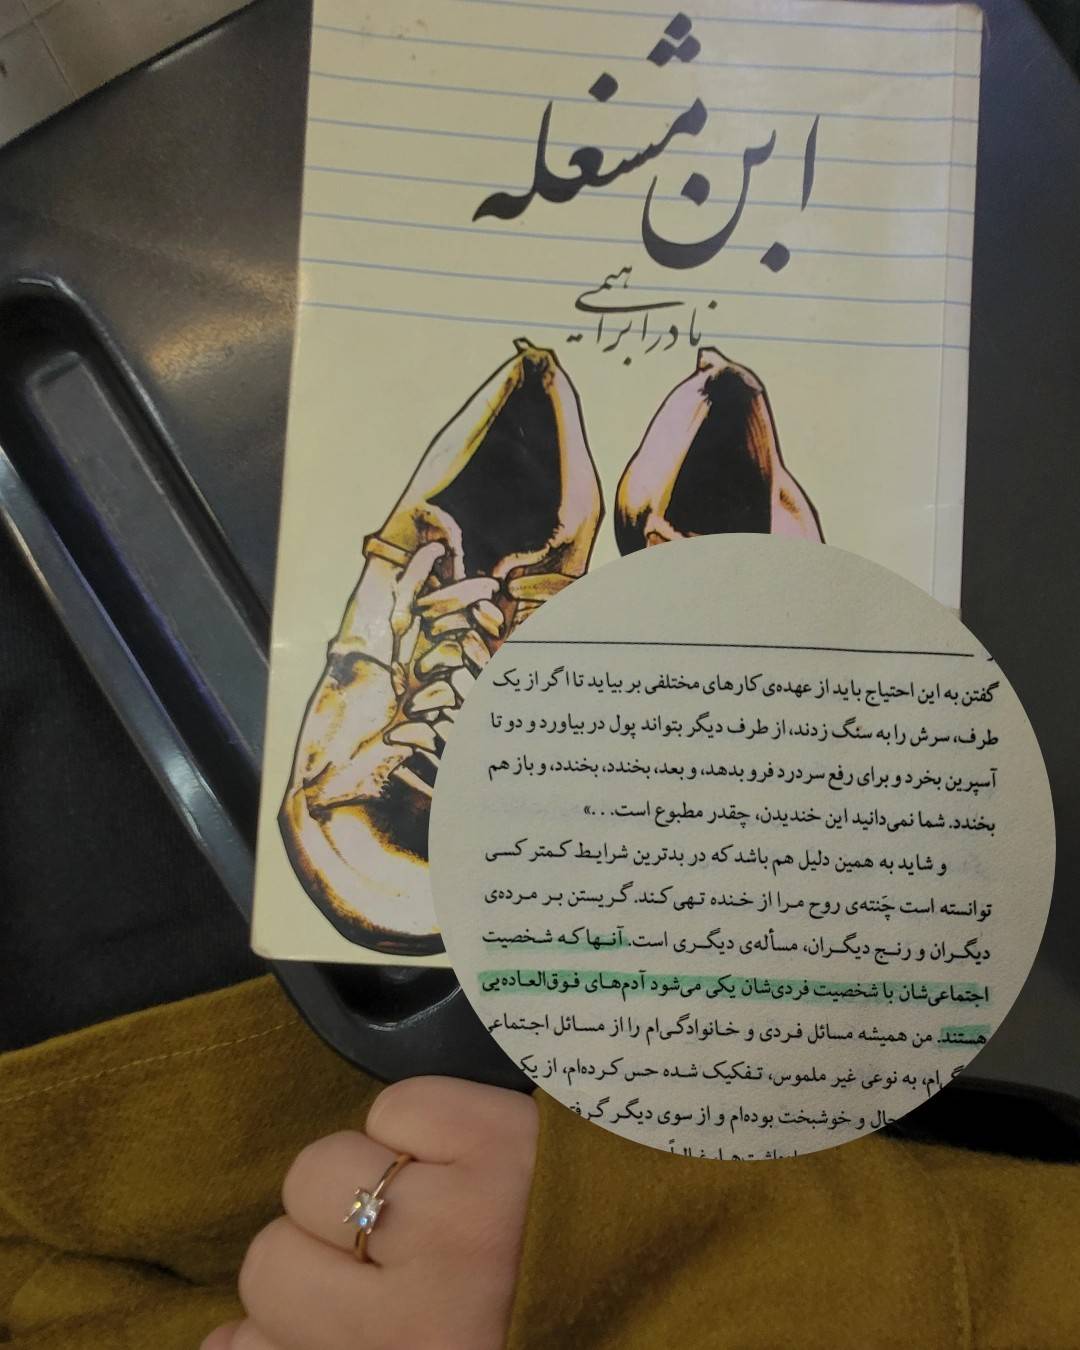 ابن مشغله
نادر ابراهیمی
گفتن به این احتیاج باید از عهده‌ی کارهای مختلفی بر بیاید تا اگر از یک
طرف، سرش را به سنگ زدند، از طرف دیگر بتواند پول در بیاورد و دو تا
آسپرین بخرد و برای رفع سردرد فرو بدهد، و بعد، بخندد، بخندد، و باز هم
بخندد. شما نمی‌دانید این خندیدن، چقدر مطبوع است...»
و شاید به همین دلیل هم باشد که در بدترین شرایط کمتر کسی
توانسته است چَنته‌ی روح مرا از خنده تهی کند. گریستن بر مرده‌ی
دیگران و رنج دیگران، مسأله‌ی دیگری است. آنها که شخصیت
اجتماعی‌شان با شخصیت فردی‌شان یکی می‌شود آدم‌های فوق‌العاده‌یی
هستند. من همیشه مسائل فردی و خانوادگی‌ام را از مسائل اجتماعی
به نوعی غیر ملموس، تفکیک شده حس کرده‌ام، از یک
حال و خوشبخت بوده‌ام و از سوی دیگر